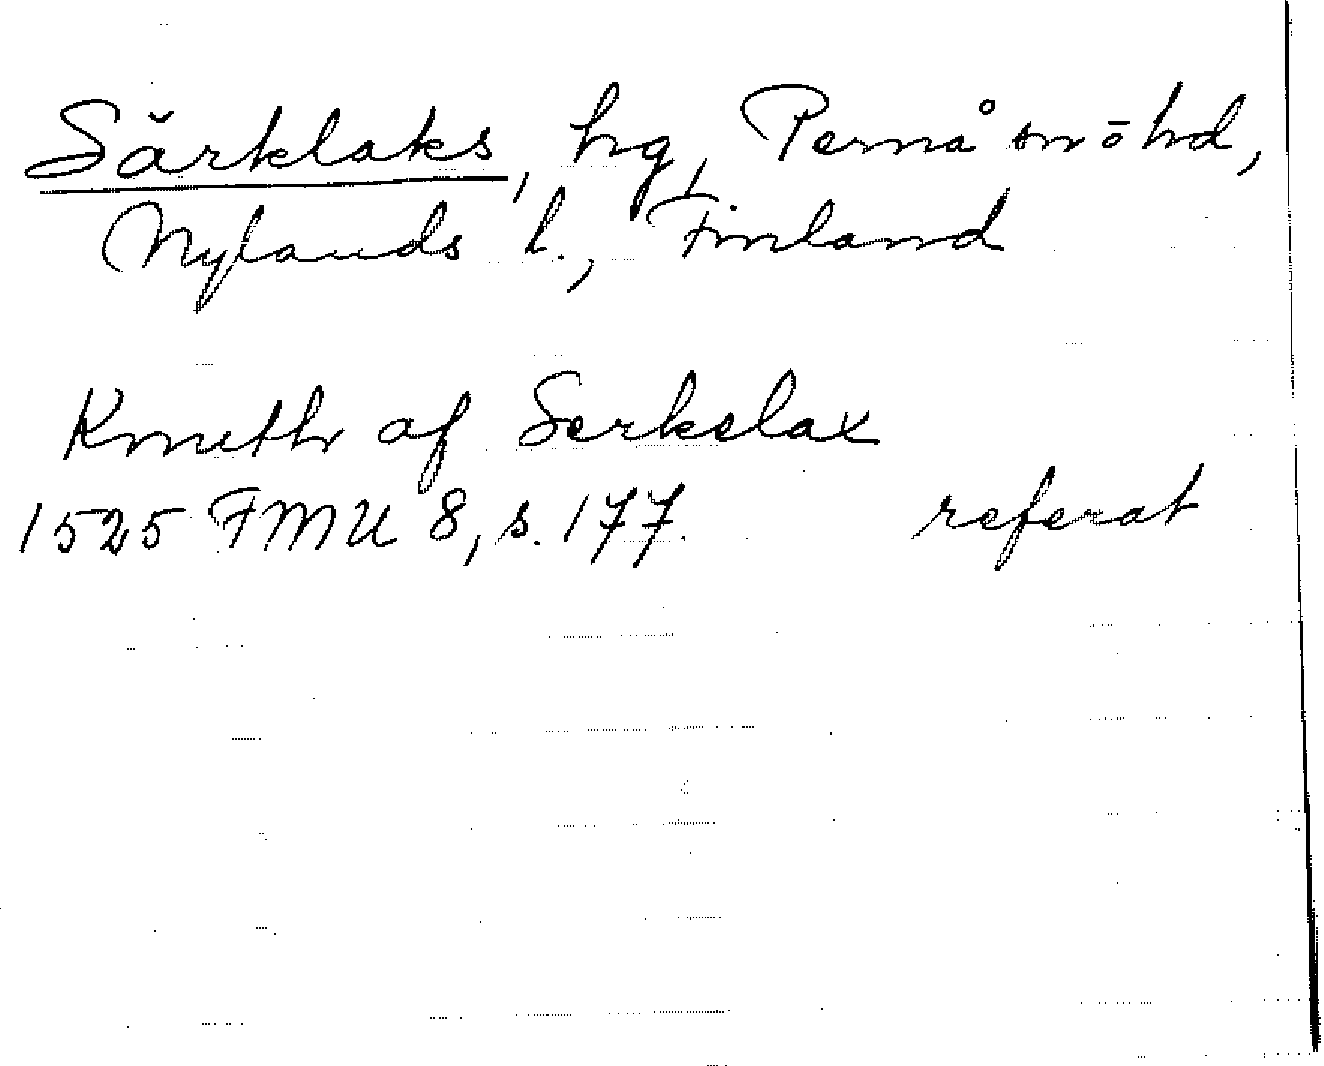 Särklaks, hg, Pernå sn o hd,
Nylands l., Finland
Knuth af Serkelax
1525 FMU 8, s. 177. referat